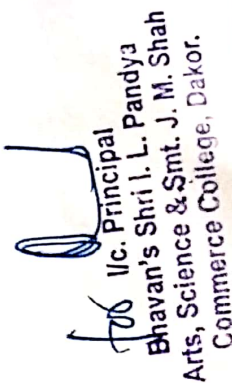 for I/c. Principal
Bhavan's Shri I. L. Pandya
Arts, Science & Smt. J. M. Shah
Commerce College, Dakor.